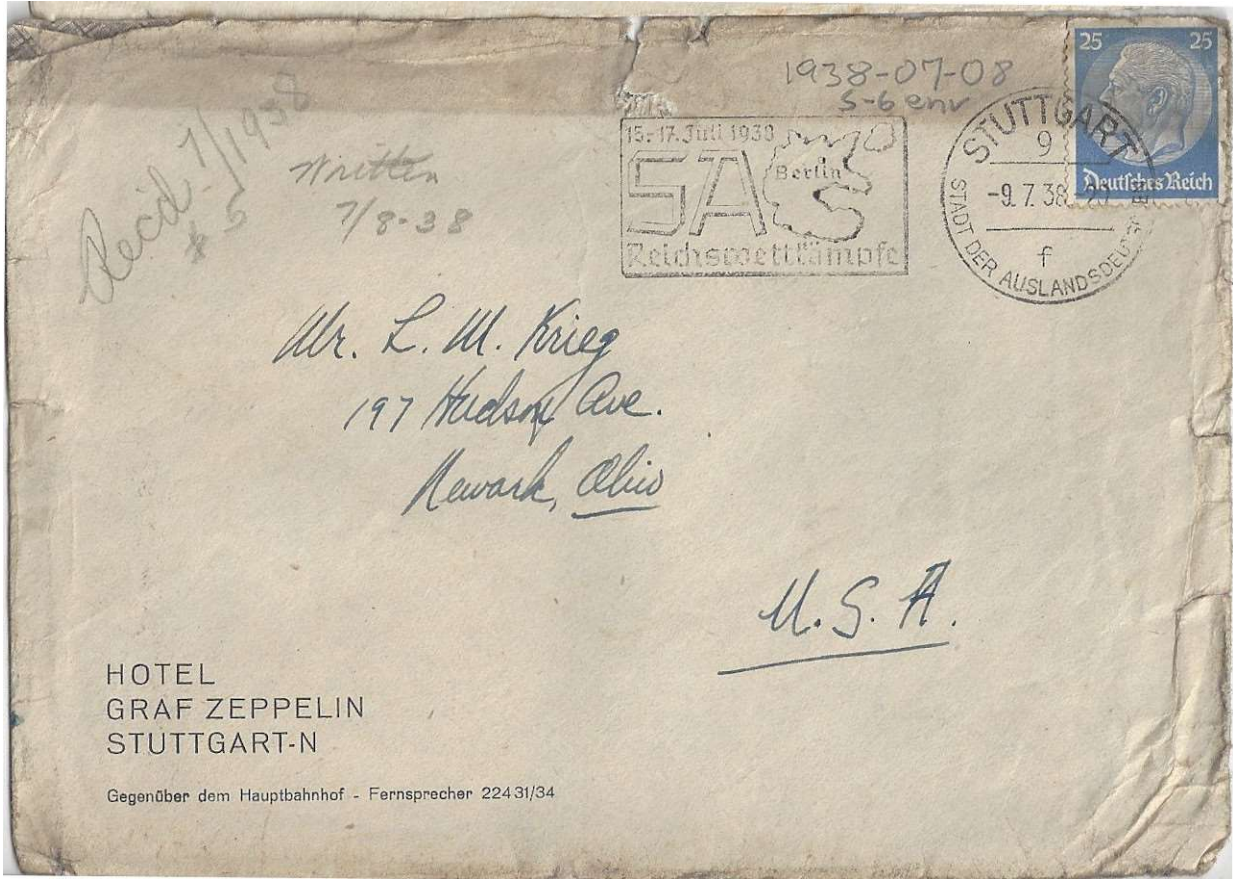 1938-07-08
S-6 env
Rec'd 7/1938
# 5
Written
7/8-38
15.-17. Juli 1938
SA
Berlin
Reichswettkämpfe
STUTTGART
9
-9.7.38
f
STADT DER AUSLANDSDEUTSCHEN
25 25
Deutsches Reich
Mr. L. M. Krieg
197 Hudson Ave.
Newark, Ohio
U.S.A.
HOTEL
GRAF ZEPPELIN
STUTTGART-N
Gegenüber dem Hauptbahnhof - Fernsprecher 22431/34